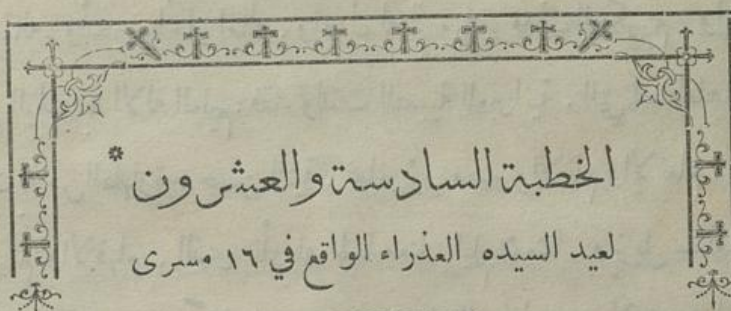 الخطبة السادسة والعشرون*
لعيد السيده العذراء الواقع في ١٦ مسرى